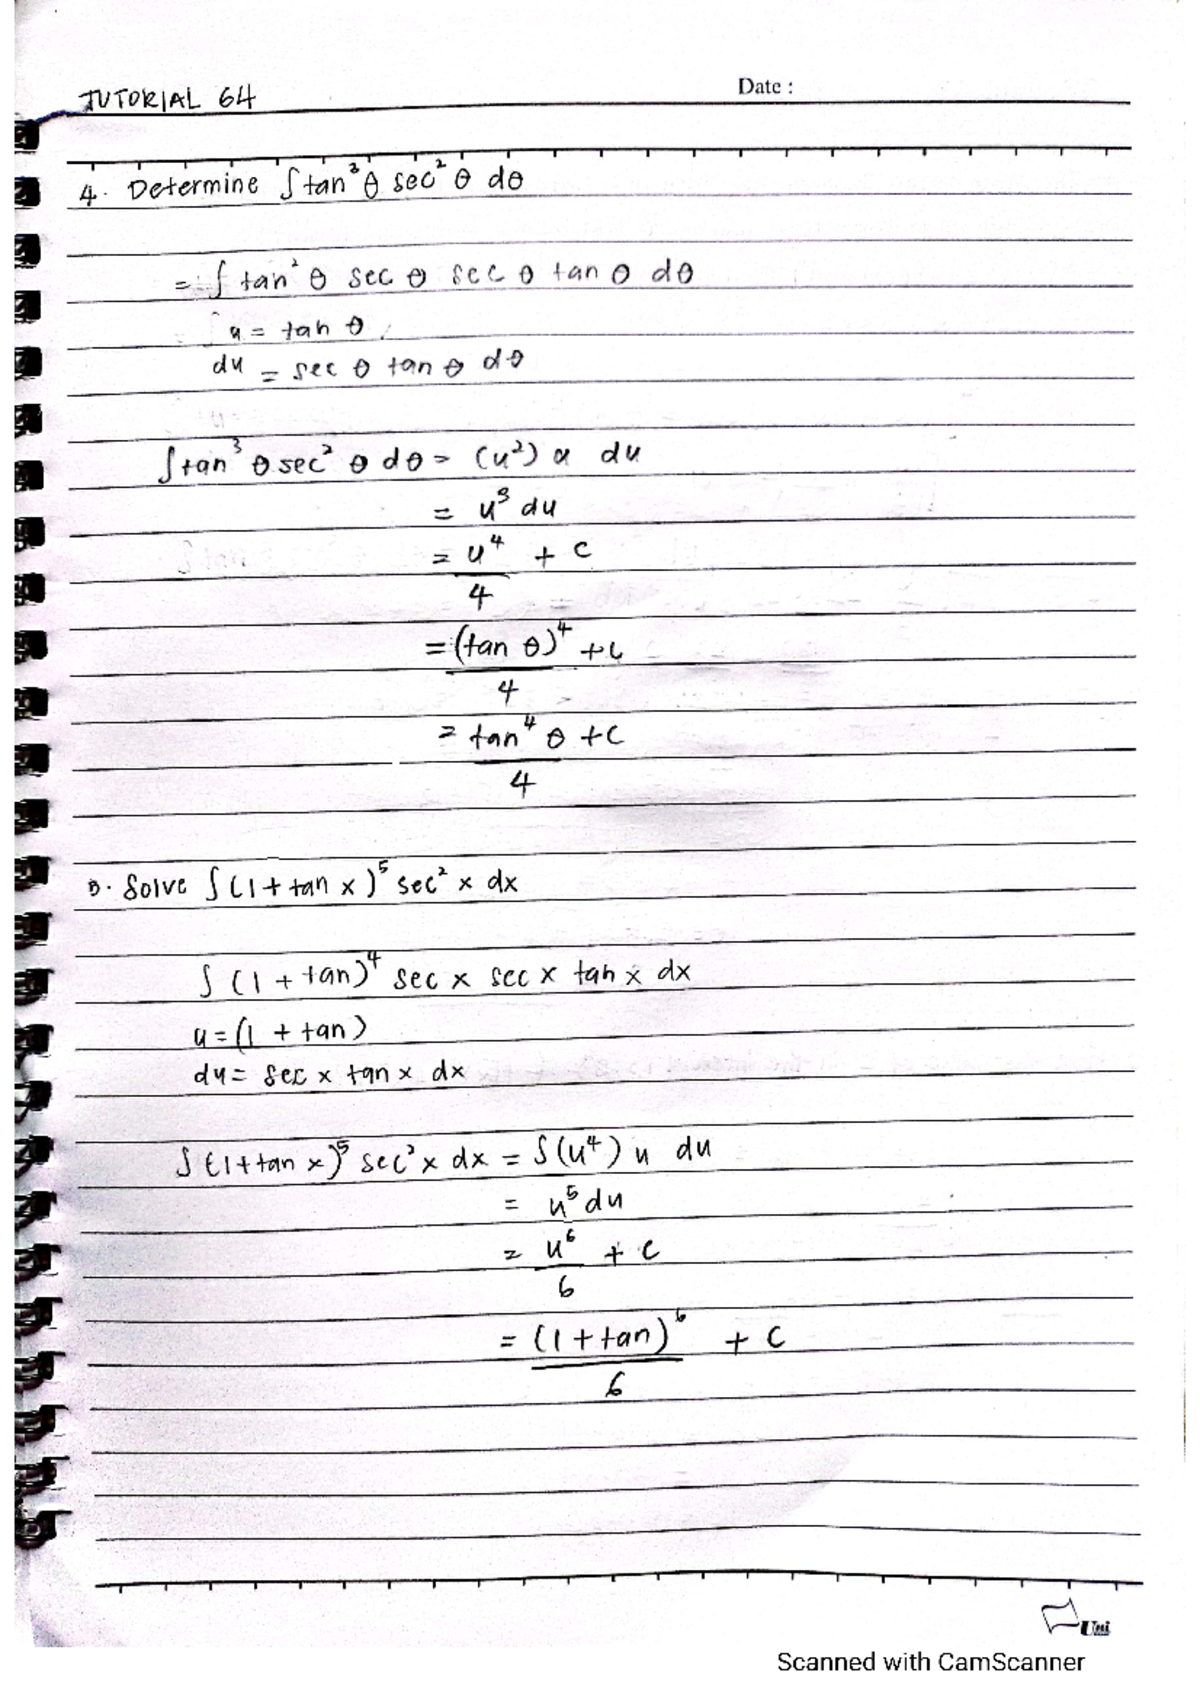 TUTORIAL 64
Date :
4. Determine ∫tan³ θ sec² θ dθ
= ∫ tan² θ sec θ sec θ tan θ dθ
u = tan θ
du = sec θ tan θ dθ
∫tan³ θ sec² θ dθ = (u²) u du
= u³ du
= u⁴/4 + c
= (tan θ)⁴/4 + c
= tan⁴ θ/4 + c
Solve ∫(1 + tan x)⁵ sec² x dx
∫ (1 + tan)⁴ sec x sec x tan x dx
u = (1 + tan)
du = sec x tan x dx
∫(1 + tan x)⁵ sec² x dx = ∫(u⁴) u du
= u⁵ du
= u⁶/6 + c
= (1 + tan)⁶/6 + c
Uni
Scanned with CamScanner